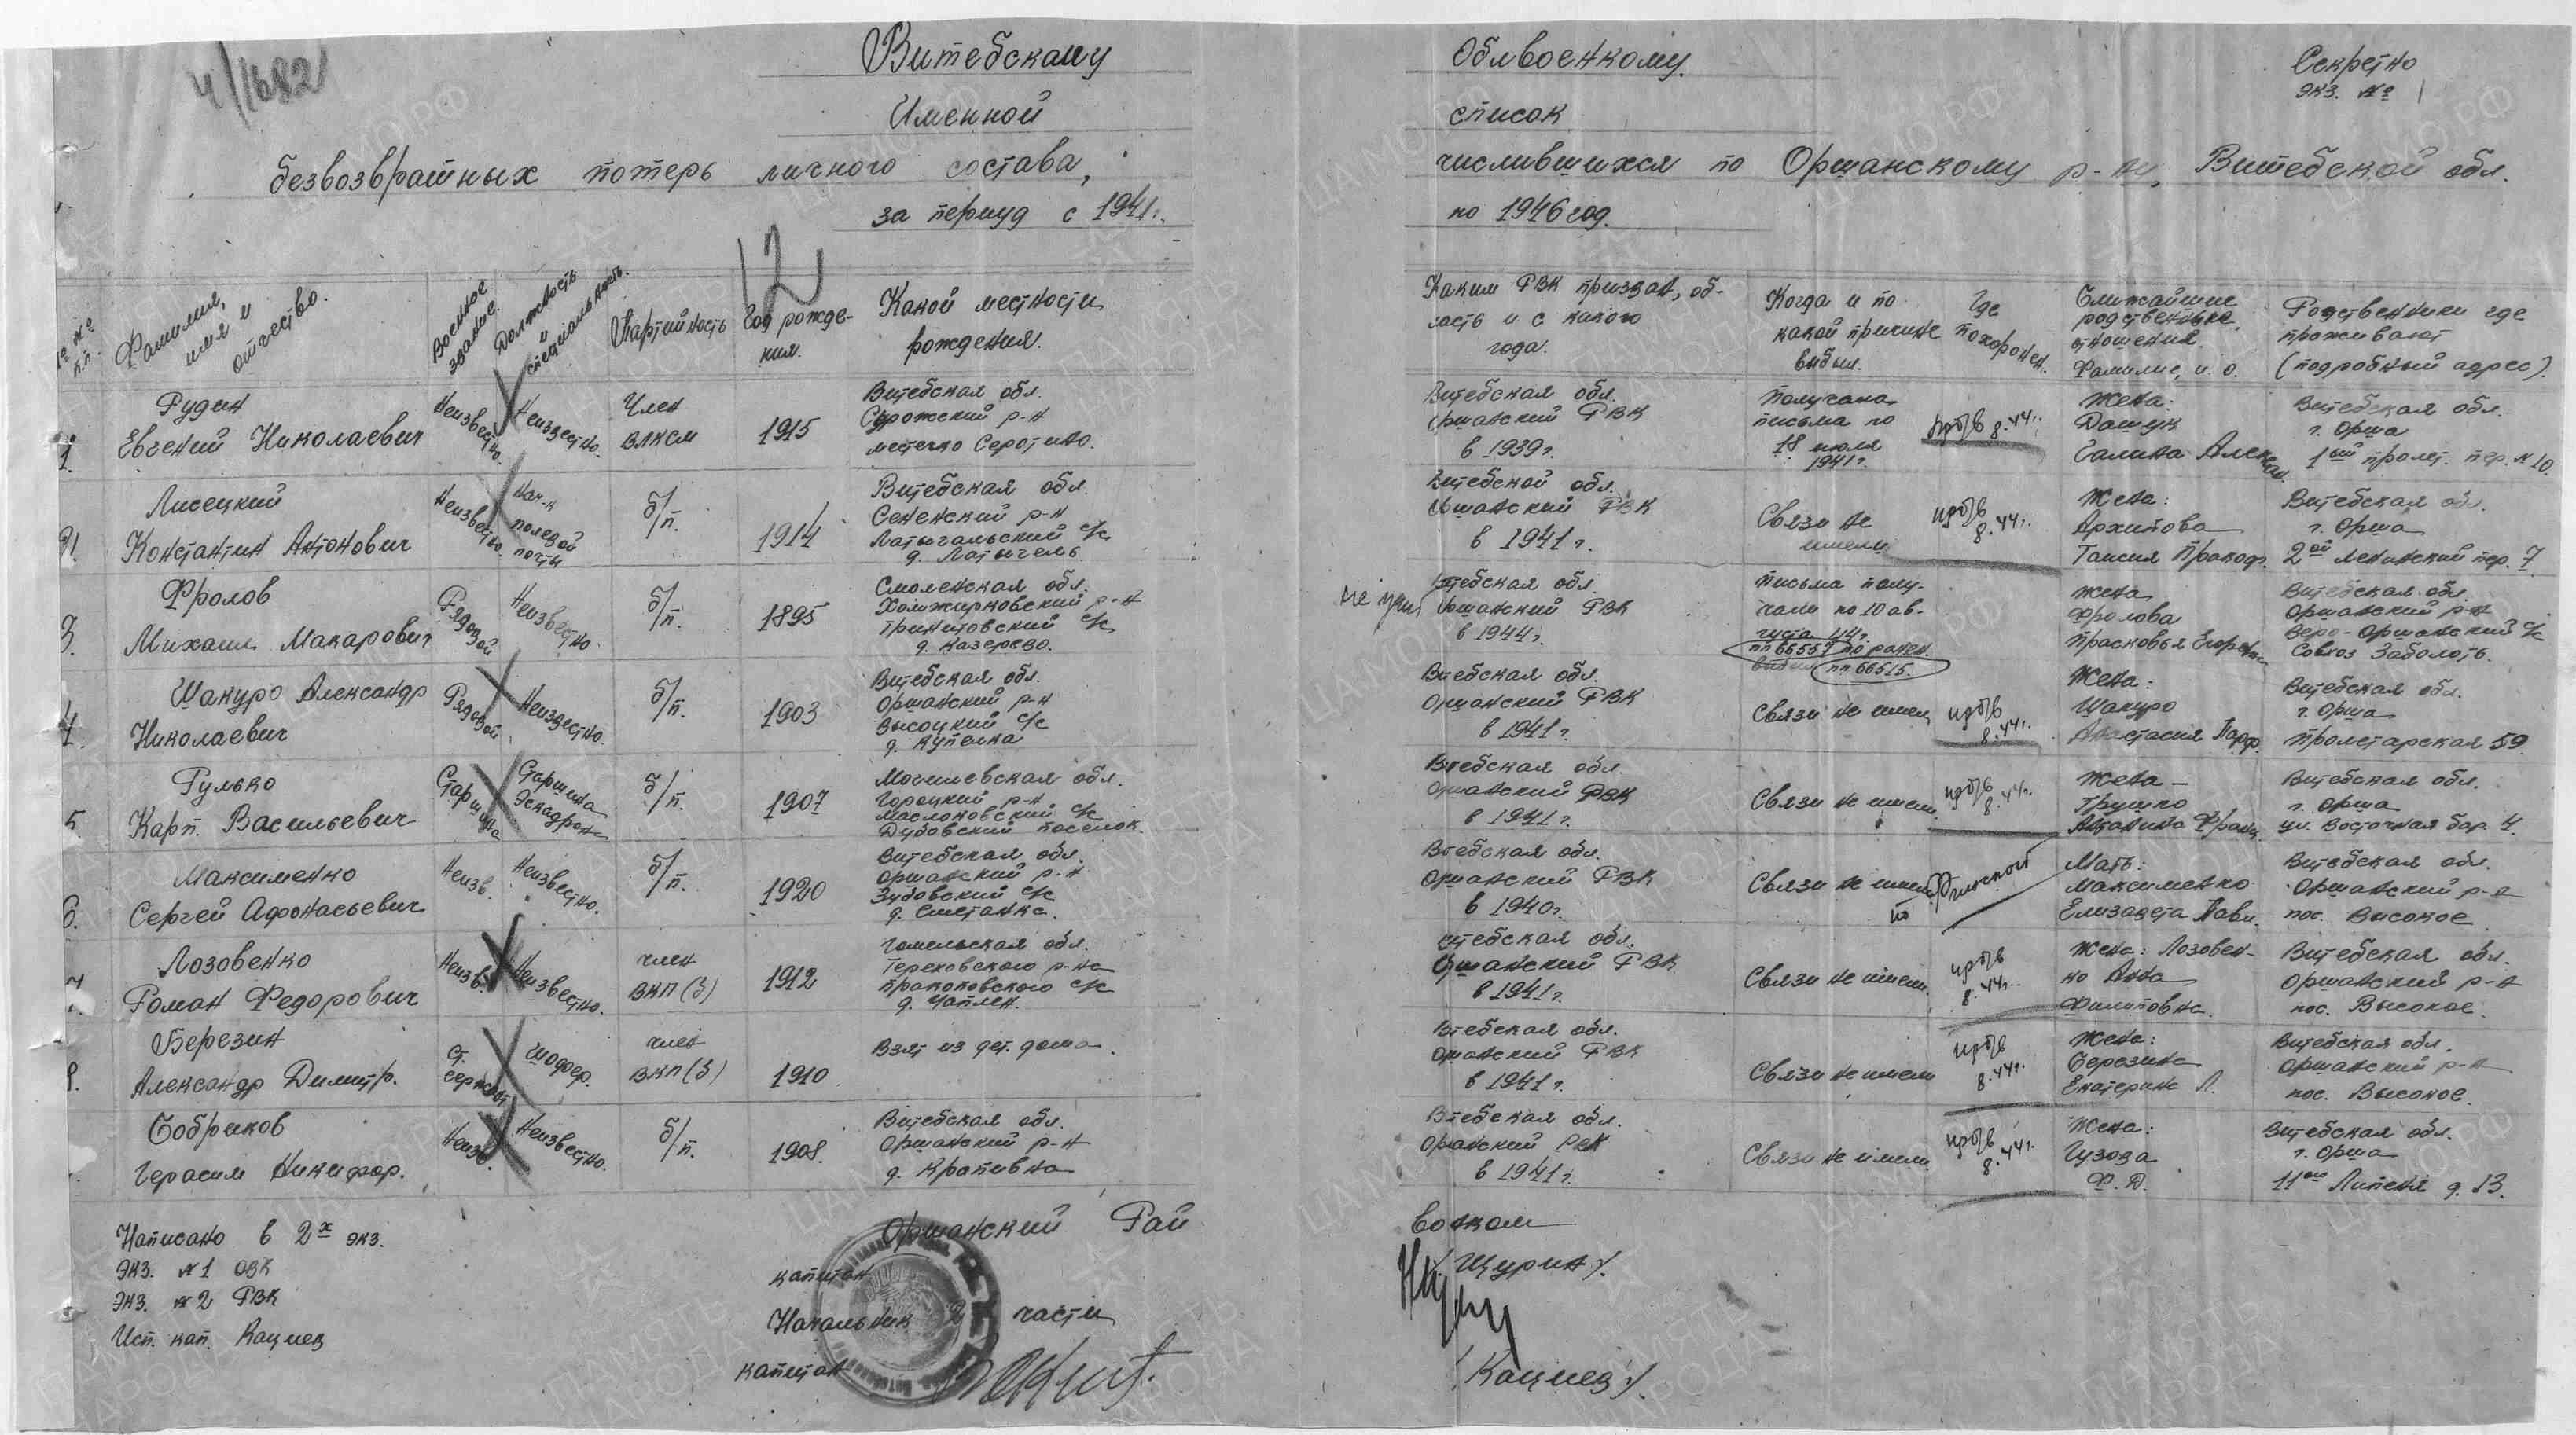 4/1682
Витебскому Облвоенкому.
Секретно
экз. № 1
Именной список
безвозвратных потерь личного состава, числившихся по Оршанскому р-ну, Витебской обл.
за период с 1941г. по 1946 год.
12
№№ п.п.
Фамилия, имя и отчество.
Военное звание.
Должность и специальность.
Партийность
Год рождения.
Какой местности рождения.
Каким РВК призван, область и с какого года.
Когда и по какой причине выбыл.
Где похоронен.
Ближайшие родственники, отношения. Фамилие, и. о.
Родственники где проживают (подробный адрес).
1.
Рудин
Евгений Николаевич
Неизвестно.
Неизвестно.
Член
ВЛКСМ
1915
Витебская обл.
Сурожский р-н
местечко Серотино.
Витебская обл.
Оршанский РВК
в 1939г.
Получала
письма по
18 июля
1941г.
проп/в 8.44г.
Жена:
Дашук
Галина Алексан.
Витебская обл.
г. Орша
1ый пролет. пер. №10.
2.
Лисецкий
Константин Антонович
Неизвестно.
Нач-к
полевой
почты
б/п.
1914
Витебская обл.
Сененский р-н
Латыгальский с/с
д. Латыгель.
Витебской обл.
Оршанский РВК
в 1941г.
Связи не
имели
проп/в
8.44г.
Жена:
Архипова
Таисия Прокоф.
Витебская обл.
г. Орша
2ой Ленинский пер. 7
3.
Фролов
Михаил Макарович
Рядовой
Неизвестно.
б/п.
1895
Смоленская обл.
Холмжирковский р-н
с/с
д. Казерево.
не учит
Витебская обл.
Оршанский РВК
в 1944г.
Письма полу-
чали по 10 ав-
густа 44г.
пп 66557 по ранен.
выбыл пп 66515.
Жена
Фролова
Прасковья Егоровна
Витебская обл.
Оршанский р-н
Веро-Оршанский с/с
Совхоз Заболоть.
4.
Шакуро Александр
Николаевич
Рядовой
Неизвестно.
б/п.
1903
Витебская обл.
Оршанский р-н
Высоцкий с/с
д. Купелка
Витебская обл.
Оршанский РВК
в 1941г.
Связи не имел
проп/в
8.44г.
Жена:
Шакуро
Анастасия Парф.
Витебская обл.
г. Орша
Пролетарская 59.
5
Гулько
Карп. Васильевич
Старшина
Старшина
Эскадрона
б/п.
1907
Могилевская обл.
Горецкий р-н
Маслаковский с/с
Дубовский поселок.
Витебская обл.
Оршанский РВК
в 1941г.
Связи не имели.
проп/в
8.44г.
Жена –
Грушко
Франц.
Витебская обл.
г. Орша
ул. Восточная бар. 4.
6.
Максименко
Сергей Афонасьевич
Неизв.
Неизвестно.
б/п.
1920
Витебская обл.
Оршанский р-н
Зубовский с/с
д. Сметанка.
Витебская обл.
Оршанский РВК
в 1940г.
Связи не имел
Финской
Мать:
Максименко
Елизавета Павл.
Витебская обл.
Оршанский р-н
пос. Высокое
7.
Лозовенко
Роман Федорович
Неизв.
Неизвестно.
член
ВКП(б)
1912
Гомельская обл.
Тереховского р-на
с/с
д. Чаплен.
Витебская обл.
Оршанский РВК
в 1941г.
Связи не имели.
проп/в
8.44г.
Жена: Лозовен-
ко Анна
Филиповна.
Витебская обл.
Оршанский р-н
пос. Высокое.
8.
Березин
Александр Димитр.
Ст.
сержант
Шофер.
член
ВКП(б)
1910
Взят из дет. дома.
Витебская обл.
Оршанский РВК
в 1941г.
Связи не имели
проп/в
8.44г.
Жена:
Березина
Екатерина Л.
Витебская обл.
Оршанский р-н
пос. Высокое.
Бобриков
Герасим Никифор.
Неизв.
Неизвестно.
б/п.
1908.
Витебская обл.
Оршанский р-н
д. Крапивна
Витебская обл.
Оршанский РВК
в 1941г.
Связи не имели
проп/в
8.44г.
Жена:
Гузова
Ф. Д.
Витебская обл.
г. Орша
11ое Липеня д. 13.
Написано в 2х экз.
Экз. №1 ОВК
Экз. №2 РВК
Исп. кап. Кациев
Оршанский Рай военком
капитан /Щурин/.
Начальник 2 части
капитан /Кациев/.